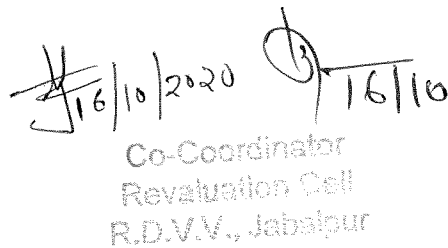 16/10/2020 16/10
Co-Coordinator
Revaluation Cell
R.D.V.V., Jabalpur